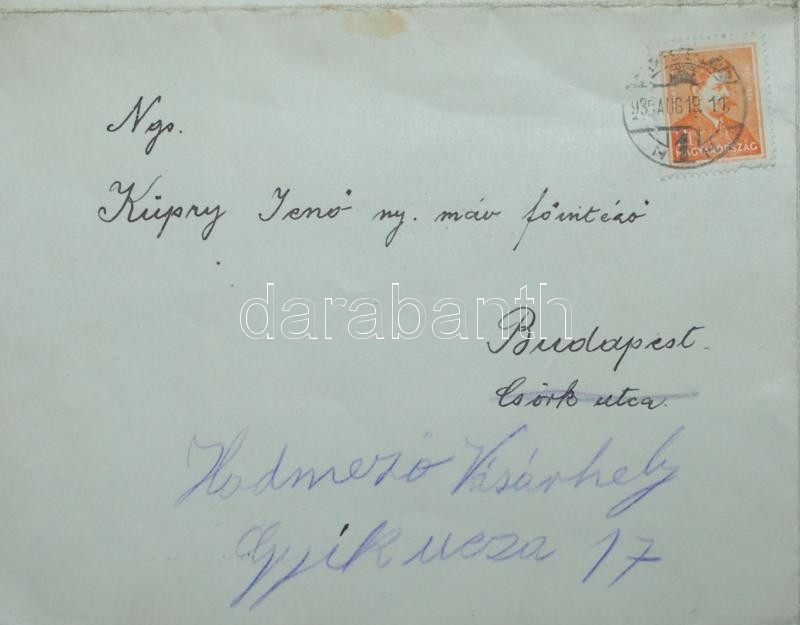 935 AUG 19. 11
1
MAGYARORSZÁG
Ngs.
Küpry Jenő ny. máv főintéző
darabanth
Budapest.
Csörk utca.
Hodmező Vásárhely
Gyík ucza 17